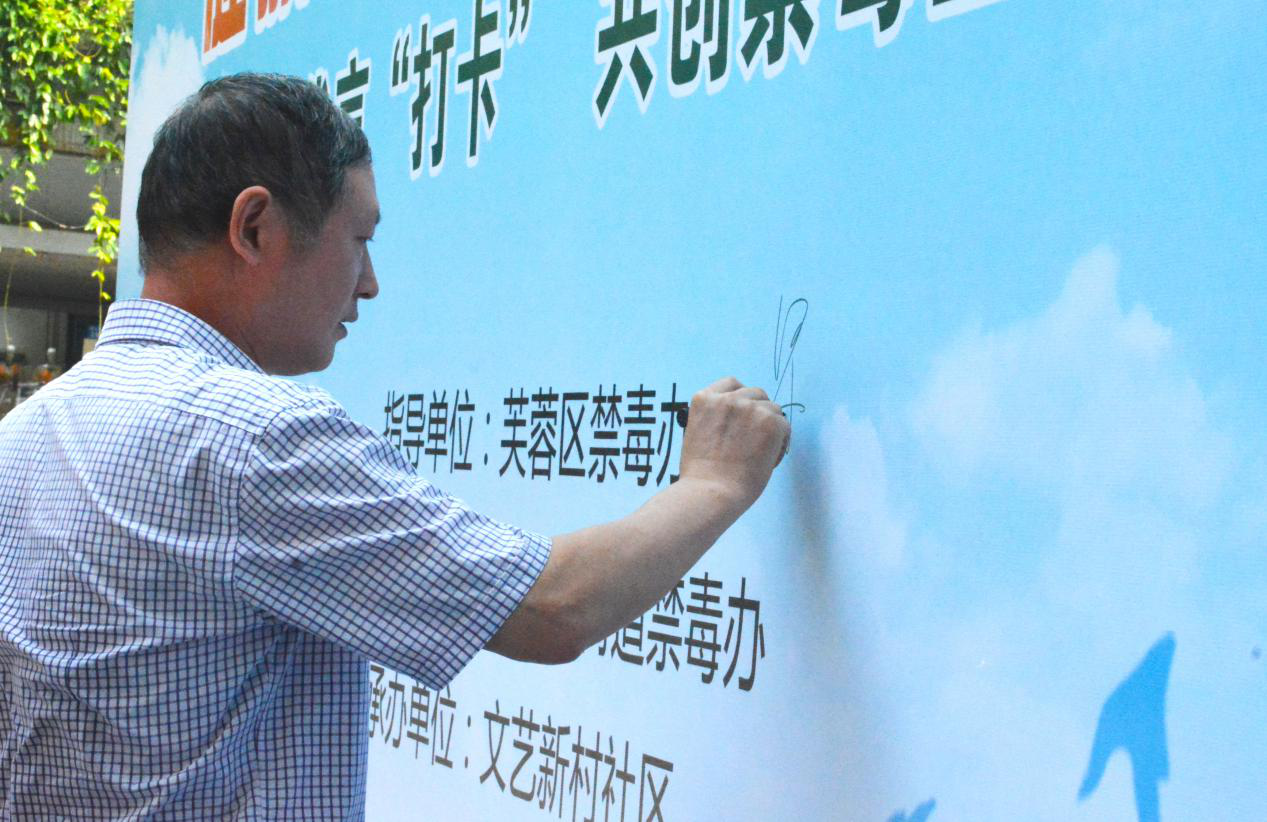 言“打卡” 共创禁毒
指导单位：芙蓉区禁毒办
道禁毒办
承办单位：文艺新村社区